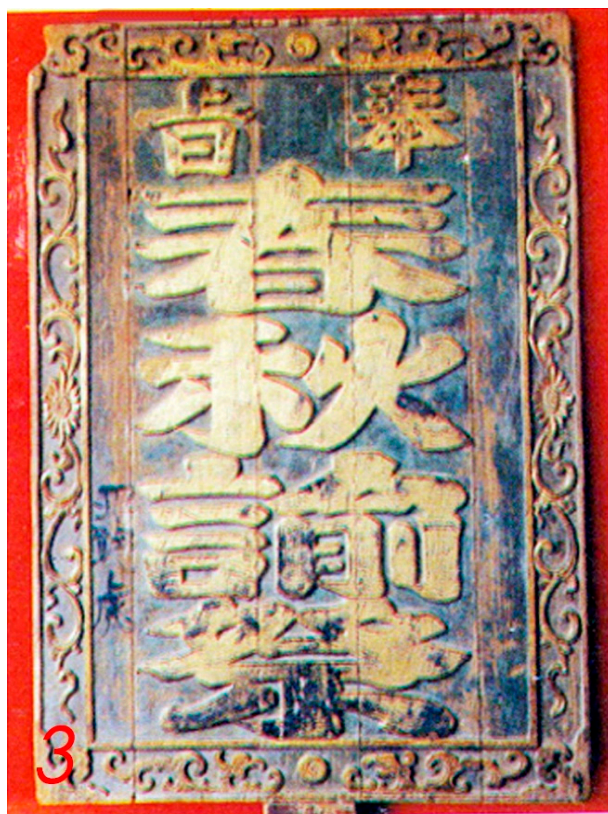 奉旨
春秋諭祭
3